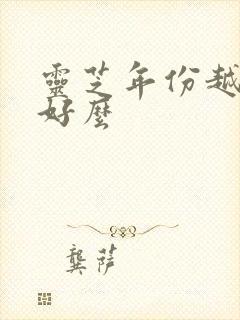 靈芝年份越
好麼
龔薩